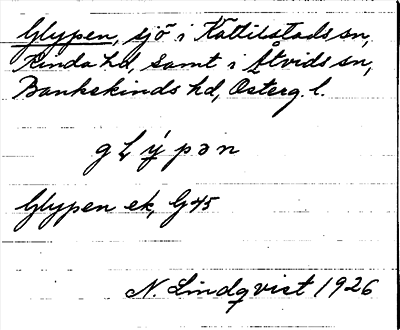 Glypen, sjö i Kättilstads sn,
Kinda hd, samt i Åtvids sn,
Bankekinds hd, Österg. l.
glýpən
Glypen ek, G 45
N. Lindqvist 1926